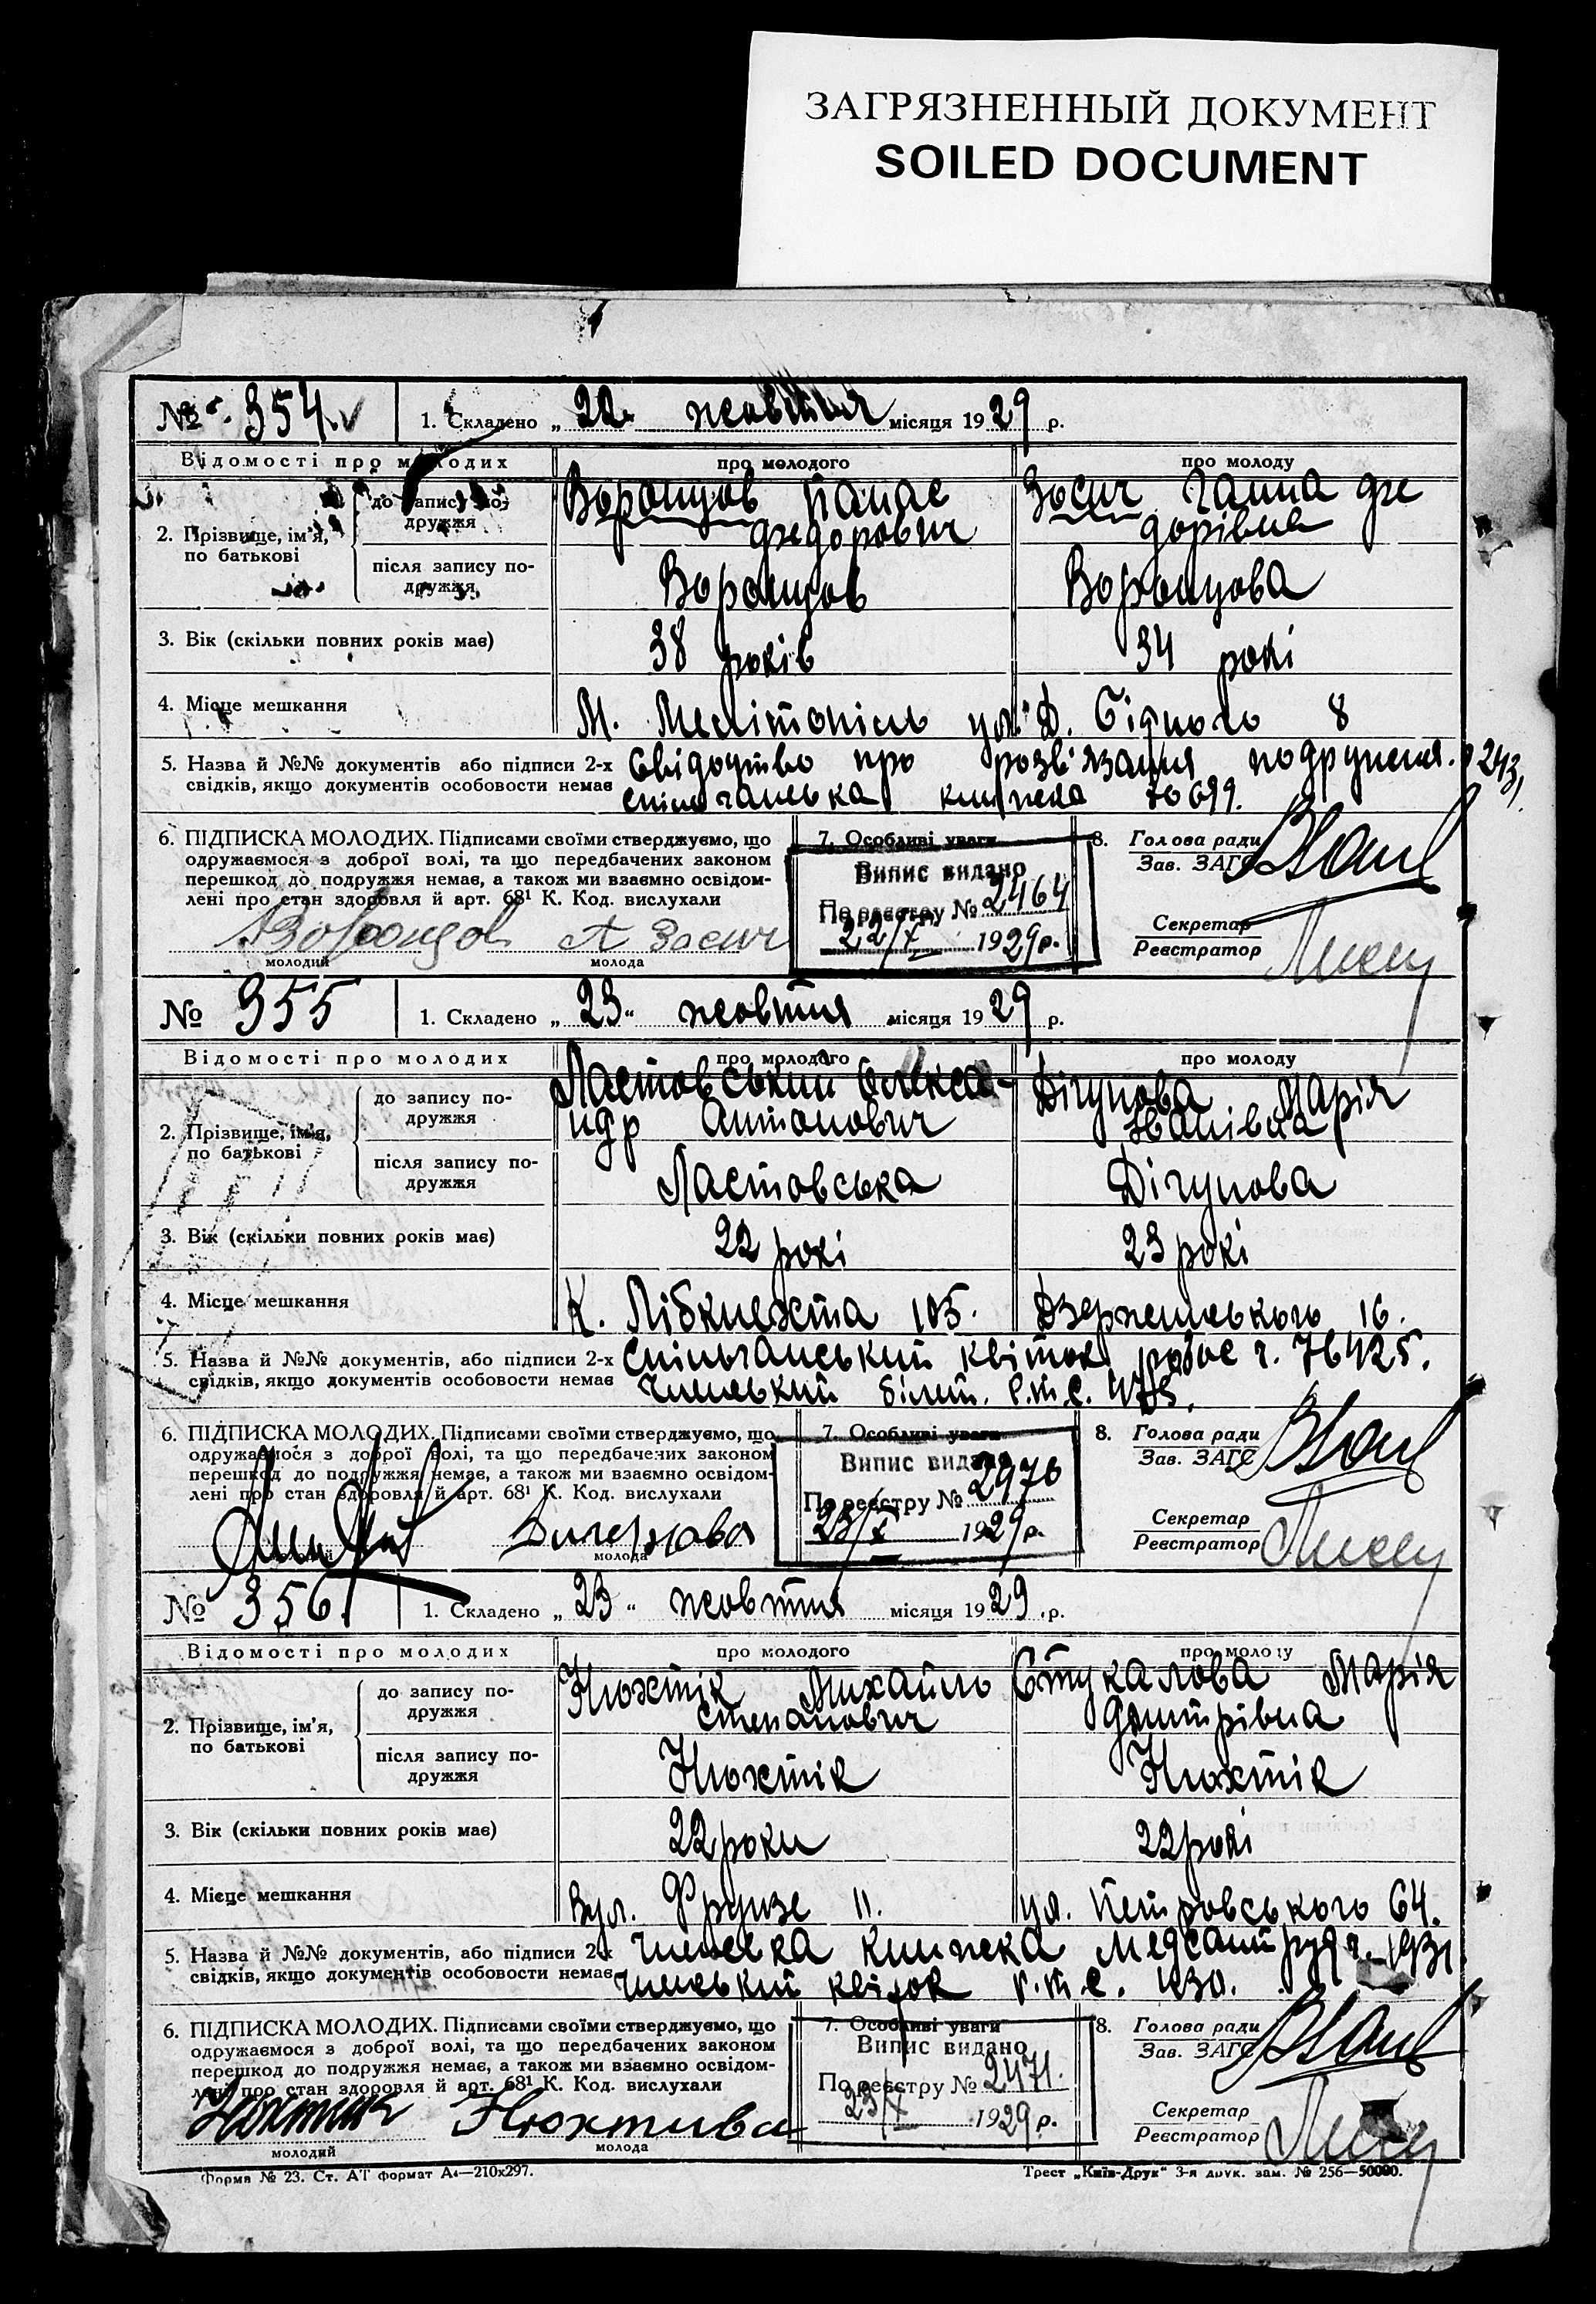 ЗАГРЯЗНЕННЫЙ ДОКУМЕНТ
SOILED DOCUMENT
№ 354. 1. Складено „22“ жовтня місяця 1929 р.
Відомості про молодих про молодого про молоду
2. Прізвище, ім’я, по батькові
до запису подружжя
Воронцов Панас Федорович
Зосич Ганна Федорівна
після запису подружжя
Воронцов Воронцова
3. Вік (скільки повних років має) 38 років 34 рокі
4. Місце мешкання М. Мелітопіль ул. Д. Бідного 8
5. Назва й №№ документів або підписи 2-х Свідоцтво про розвязання подружжя. 243,
свідків, якщо документів особовости немає спілчанська книжка 76699.
6. ПІДПИСКА МОЛОДИХ. Підписами своїми стверджуємо, що
одружаємося з доброї волі, та що передбачених законом
перешкод до подружжя немає, а також ми взаємно освідом-
лені про стан здоровля й арт. 68¹ К. Код. вислухали
Воронцов А Зосич
молодий молода
7. Особливі уваги
Випис видано
По реєстру № 2464
22/X 1929 р.
8. Голова ради
Зав. ЗАГС
Секретар
Реєстратор
№ 355 1. Складено „23“ жовтня місяця 1929 р.
Відомості про молодих про молодого про молоду
2. Прізвище, ім’я, по батькові
до запису подружжя
Ластовський Олександр Антонович
Дігунова Марія Іванівна
після запису подружжя
Ластовська Дігунова
3. Вік (скільки повних років має) 22 рокі 23 рокі
4. Місце мешкання К. Лібкнехта 105. Дзержинського 16.
5. Назва й №№ документів, або підписи 2-х спілчанський квіток робос ч. 76425.
свідків, якщо документів особовости немає членський білет. р.т.с. 475.
6. ПІДПИСКА МОЛОДИХ. Підписами своїми стверджуємо, що
одружаємося з доброї волі, та що передбачених законом
перешкод до подружжя немає, а також ми взаємно освідом-
лені про стан здоровля й арт. 68¹ К. Код. вислухали
Дигунова
молодий молода
7. Особливі уваги
Випис видано
По реєстру № 2970
23/X 1929 р.
8. Голова ради
Зав. ЗАГС
Секретар
Реєстратор
№ 356. 1. Складено „23“ жовтня місяця 1929 р.
Відомості про молодих про молодого про молоду
2. Прізвище, ім’я, по батькові
до запису подружжя
Нюхтік Михайло Степанович
Стукалова Марія Дмитрівна
після запису подружжя
Нюхтік Нюхтік
3. Вік (скільки повних років має) 22 роки 22 рокі
4. Місце мешкання Вул. Фрунзе 11. ул. Петровського 64.
5. Назва й №№ документів, або підписи 2-х членська книжка Медсантруд ч. 1931.
свідків, якщо документів особовости немає членський квіток р.т.с. 430.
6. ПІДПИСКА МОЛОДИХ. Підписами своїми стверджуємо, що
одружаємося з доброї волі, та що передбачених законом
перешкод до подружжя немає, а також ми взаємно освідом-
лені про стан здоровля й арт. 68¹ К. Код. вислухали
Нюхтик Нюхтива
молодий молода
7. Особливі уваги
Випис видано
По реєстру № 2471.
23/X 1929 р.
8. Голова ради
Зав. ЗАГС
Секретар
Реєстратор
Форма № 23. Ст. АТ формат А4—210х297. Трест „Київ-Друк“ 3-я друк. зам. № 256—50000.